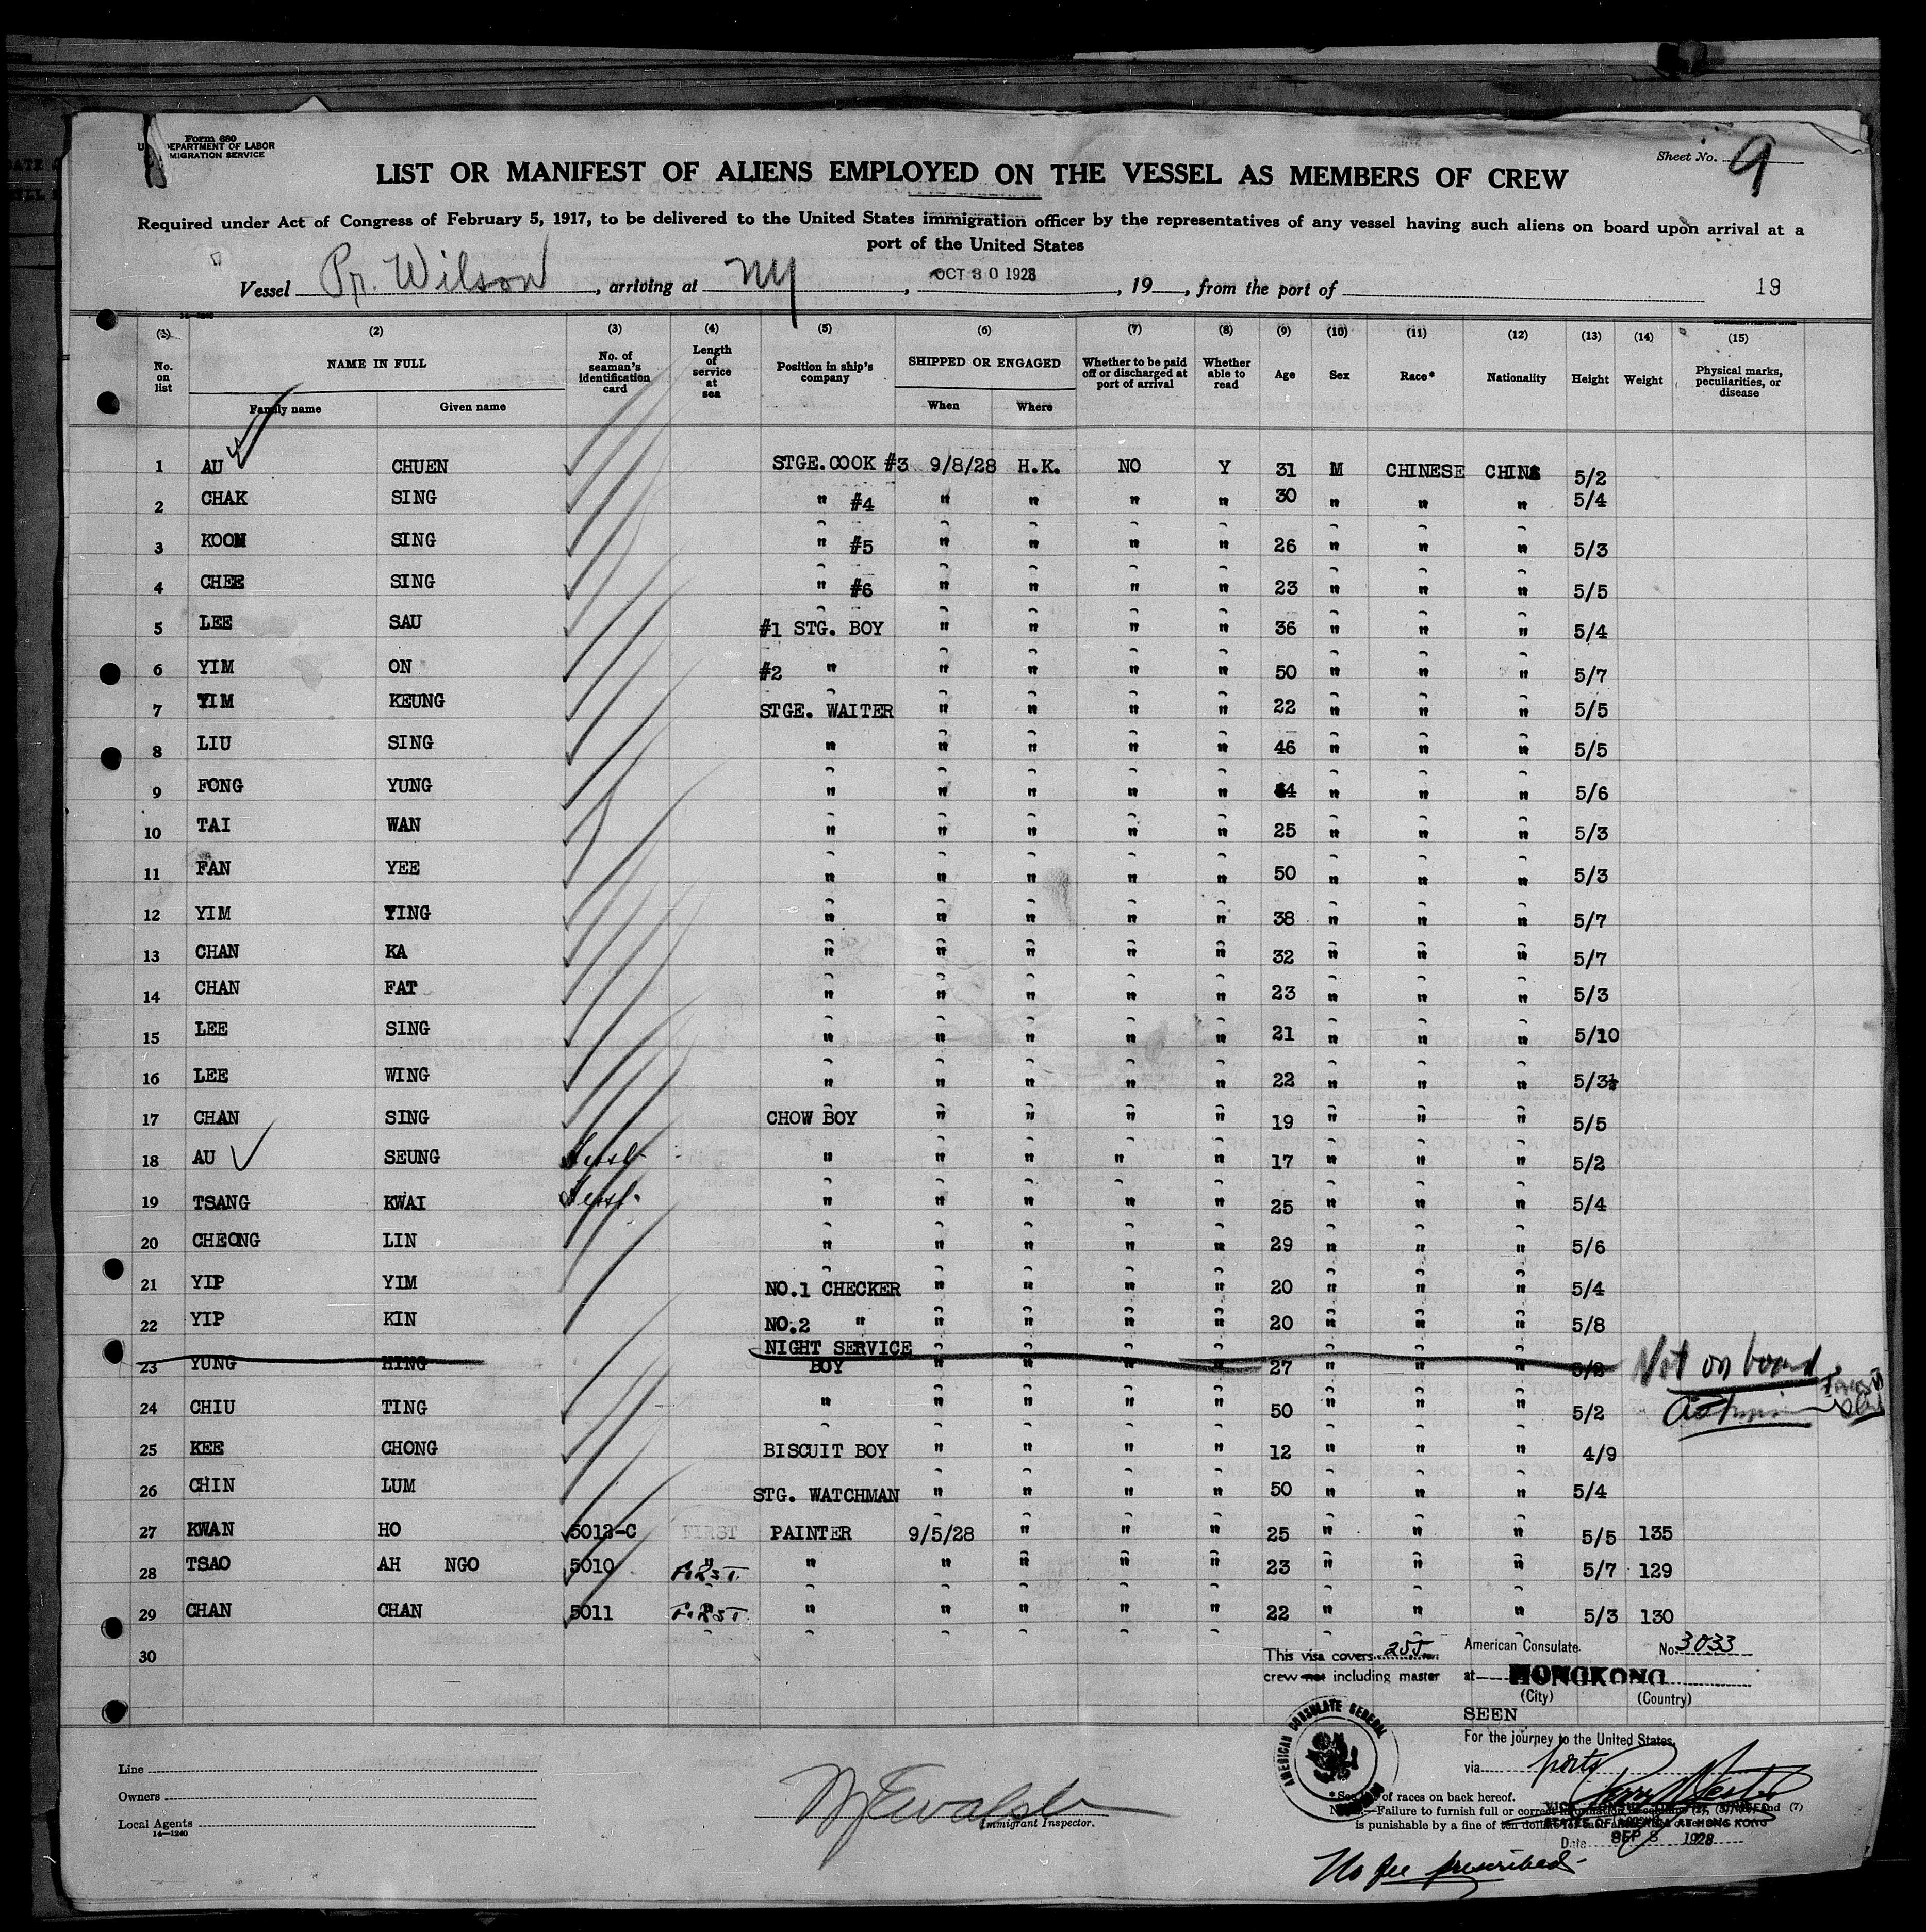 Form 680
U. S. DEPARTMENT OF LABOR
IMMIGRATION SERVICE
Sheet No. 9
LIST OR MANIFEST OF ALIENS EMPLOYED ON THE VESSEL AS MEMBERS OF CREW
Required under Act of Congress of February 5, 1917, to be delivered to the United States immigration officer by the representatives of any vessel having such aliens on board upon arrival at a
port of the United States
Vessel Pr. Wilson, arriving at NY, OCT 30 1928, 19, from the port of 19
(1) (2) (3) (4) (5) (6) (7) (8) (9) (10) (11) (12) (13) (14) (15)
No. on list NAME IN FULL Family name Given name No. of seaman's identification card Length of service at sea Position in ship's company SHIPPED OR ENGAGED When Where Whether to be paid off or discharged at port of arrival Whether able to read Age Sex Race* Nationality Height Weight Physical marks, peculiarities, or disease
1 AU CHUEN STGE.COOK #3 9/8/28 H.K. NO Y 31 M CHINESE CHINA 5/2
2 CHAK SING " #4 " " " " 30 " " " 5/4
3 KOON SING " #5 " " " " 26 " " " 5/3
4 CHEE SING " #6 " " " " 23 " " " 5/5
5 LEE SAU #1 STG. BOY " " " " 36 " " " 5/4
6 YIM ON #2 " " " " " 50 " " " 5/7
7 YIM KEUNG STGE. WAITER " " " " 22 " " " 5/5
8 LIU SING " " " " " 46 " " " 5/5
9 FONG YUNG " " " " " " " " 5/6
10 TAI WAN " " " " " 25 " " " 5/3
11 FAN YEE " " " " " 50 " " " 5/3
12 YIM YING " " " " " 38 " " " 5/7
13 CHAN KA " " " " " 32 " " " 5/7
14 CHAN FAT " " " " " 23 " " " 5/3
15 LEE SING " " " " " 21 " " " 5/10
16 LEE WING " " " " " 22 " " " 5/3½
17 CHAN SING CHOW BOY " " " " 19 " " " 5/5
18 AU SEUNG " " " " " 17 " " " 5/2
19 TSANG KWAI " " " " " 25 " " " 5/4
20 CHEONG LIN " " " " " 29 " " " 5/6
21 YIP YIM NO.1 CHECKER " " " " 20 " " " 5/4
22 YIP KIN NO.2 " " " " " 20 " " " 5/8
23 YUNG HING NIGHT SERVICE BOY " " " " 27 " " " 5/2 Not on board
24 CHIU TING " " " " " 50 " " " 5/2
25 KEE CHONG BISCUIT BOY " " " " 12 " " " 4/9
26 CHIN LUM STG. WATCHMAN " " " " 50 " " " 5/4
27 KWAN HO 5012-C FIRST PAINTER 9/5/28 " " " 25 " " " 5/5 135
28 TSAO AH NGO 5010 FIRST " " " " " 23 " " " 5/7 129
29 CHAN CHAN 5011 FIRST " " " " " 22 " " " 5/3 130
30
This visa covers 255
crew not including master
American Consulate. No. 3033
at HONGKONG
(City) (Country)
SEEN
For the journey to the United States.
via ports
AMERICAN CONSULATE GENERAL
Line
Owners
Local Agents
14—1240
Immigrant Inspector.
* See list of races on back hereof.
NOTE.—Failure to furnish full or correct information in columns (2), (3), (6) and (7)
is punishable by a fine of ten dollars for each
STATES OF AMERICA AT HONG KONG
Date SEP 8 1928
No fee prescribed.